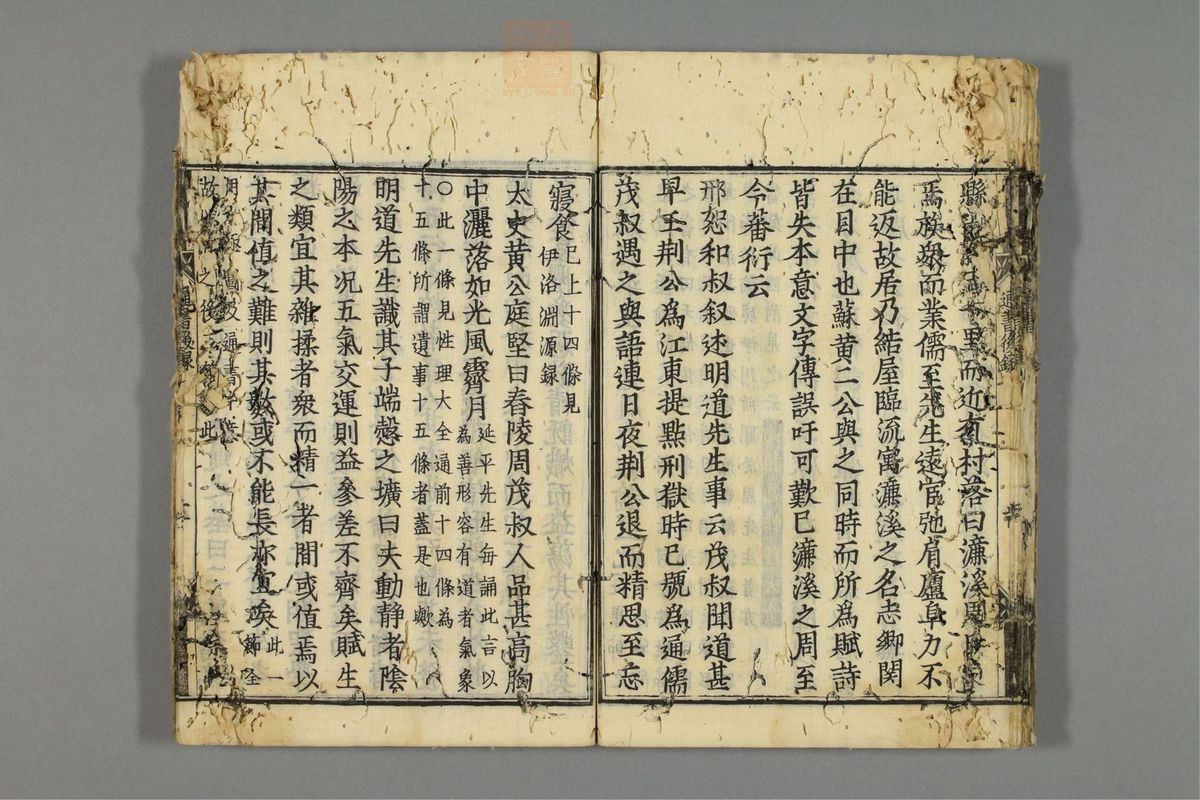 縣里而近有村落曰濂溪周
焉族衆而業儒至先生遠宦弛肩廬阜力不
能返故居乃結屋臨流寓濂溪之名志鄉関
在目中也蘇黃二公與之同時而所爲賦詩
皆失本意文字傳誤吁可歎已濂溪之周至
今蕃衍云
邢恕和叔叙述明道先生事云茂叔聞道甚
早王荆公爲江東提點刑獄時已號爲通儒
茂叔遇之與語連日夜荆公退而精思至忘
寢食
已上十四條見
伊洛淵源録
太史黃公庭堅曰舂陵周茂叔人品甚高胸
中灑落如光風霽月
延平先生每誦此言以
爲善形容有道者氣象
〇此一條見性理大全通前十四條為
十五條所謂遺事十五條者蓋是也歟
明道先生識其子端慤之壙曰夫動静者陰
陽之本况五氣交運則益參差不齊矣賦生
之類宜其雜揉者衆而精一者間或值焉以
其間值之難則其數或不能長亦宜矣
此一
節全
用
及通書
故
之後
此
通書後録